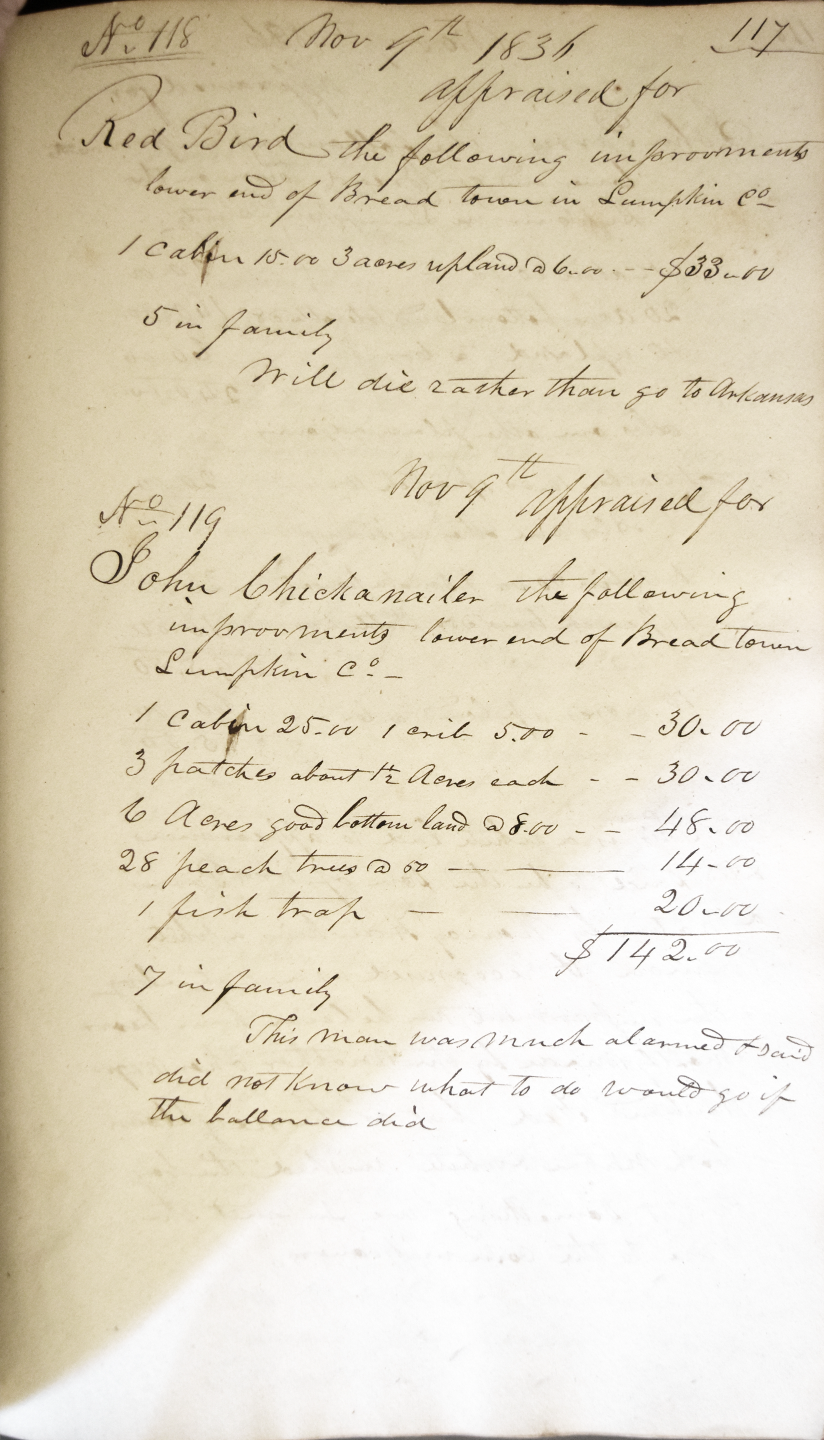 No 118 Nov 9th 1836 117
appraised for
Red Bird the following improvments
lower end of Bread town in Lumpkin Co
1 Cabin 15.00 3 acres upland @ 6.00 -- $33.00
5 in family
Will die rather than go to Arkansas
Nov 9th appraised for
No 119
John Chickanailer the following
improvments lower end of Bread town
Lumpkin Co -
1 Cabin 25.00 1 crib 5.00 - - 30.00
3 patches about 1½ Acres each - - 30.00
6 Acres good bottom land @ 8.00 - - 48.00
28 peach trees @ 50 — — 14.00
1 fish trap — — 20.00
$142.00
7 in family
This man was much alarmed & said
did not know what to do would go if
the ballance did